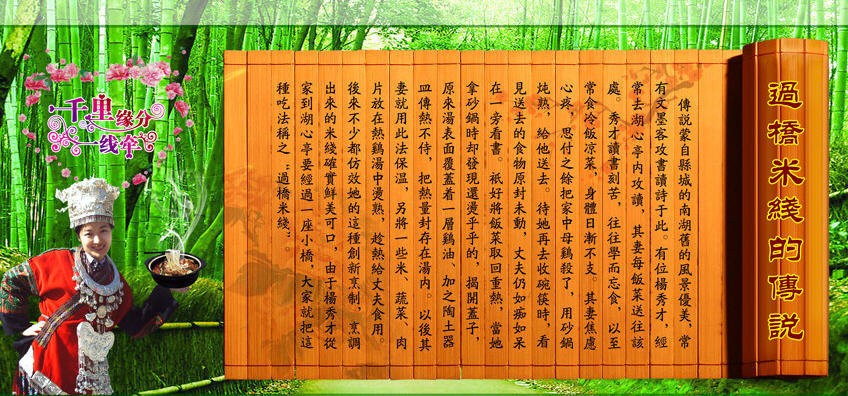 過橋米綫的傳説
傳説蒙自縣城的南湖舊的風景優美，常
有文墨客攻書讀詩于此。有位楊秀才，經
常去湖心亭内攻讀，其妻每飯菜送往該
處。秀才讀書刻苦，往往學而忘食，以至
常食冷飯凉菜，身體日漸不支。其妻焦慮
心疼，思付之餘把家中母鷄殺了，用砂鍋
炖熟，給他送去。待她再去收碗筷時，看
見送去的食物原封未動，丈夫仍如痴如呆
在一旁看書。衹好將飯菜取回重熱，當她
拿砂鍋時却發現還燙乎乎的，揭開蓋子，
原來湯表面覆蓋着一層鷄油、加之陶土器
皿傳熱不佳，把熱量封存在湯内。以後其
妻就用此法保温，另將一些米、蔬菜、肉
片放在熱鷄湯中燙熟，趁熱給丈夫食用。
後來不少都仿效她的這種創新烹制，烹調
出來的米綫確實鮮美可口，由于楊秀才從
家到湖心亭要經過一座小橋，大家就把這
種吃法稱之“過橋米綫”。
千里缘分
一线牵